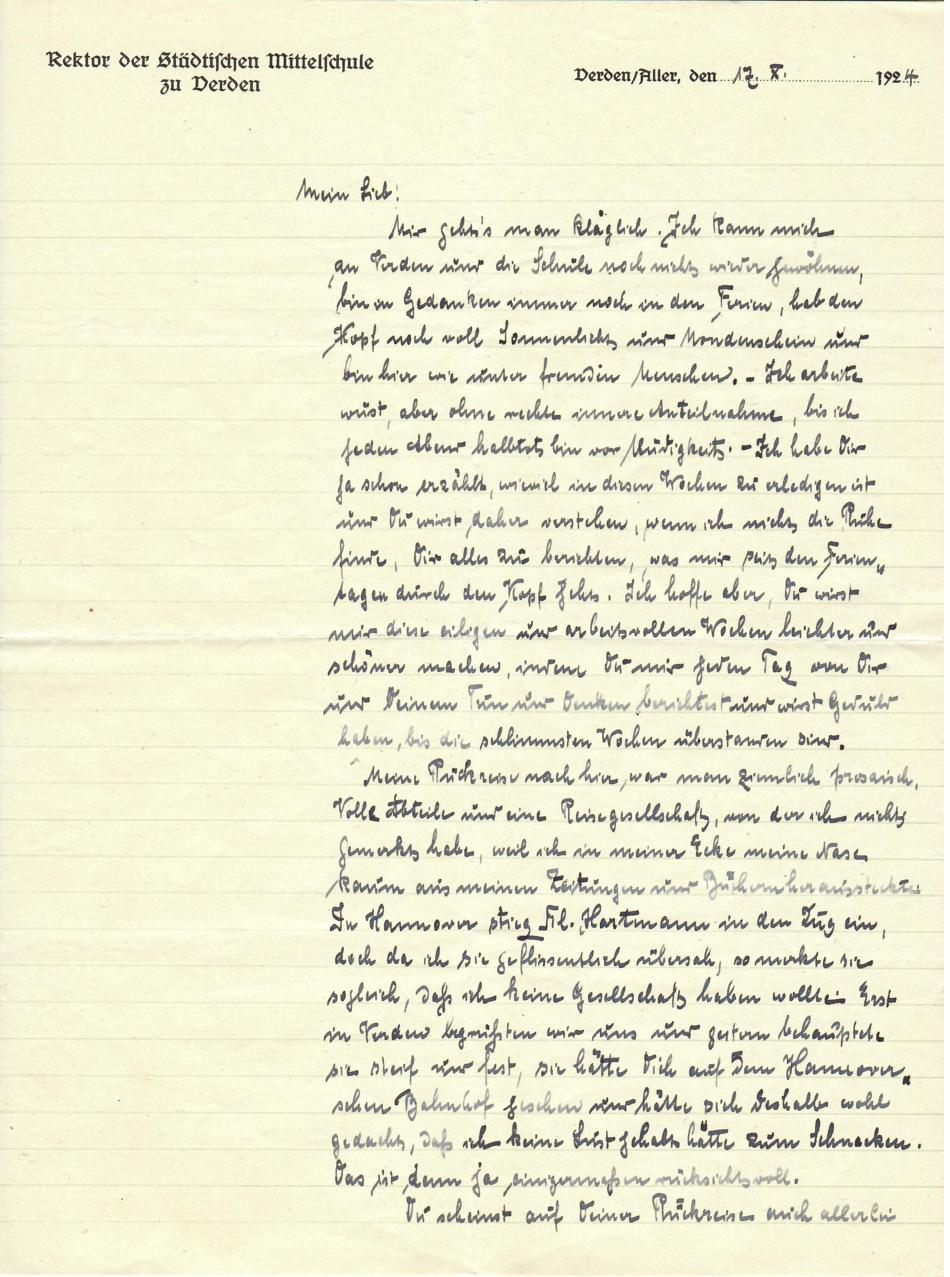 Rektor der Städtischen Mittelschule
zu Verden
Verden/Aller, den 17. X. 1924
Mein Lieb!
Mir geht's man kläglich. Ich kann mich
an Verden und die Schule noch nicht wieder gewöhnen,
bin in Gedanken immer noch in den Ferien, hab den
Kopf noch voll Sonnenlicht und Mondenschein und
bin hier wie unter fremden Menschen. – Ich arbeite
wüst, aber ohne rechte innere Anteilnahme, bis ich
jeden Abend halbtot bin vor Müdigkeit. – Ich habe Dir
ja schon erzählt, wieviel in diesen Wochen zu erledigen ist
und Du wirst daher verstehen, wenn ich nicht die Ruhe
finde, Dir alles zu berichten, was mir seit den Ferien„
tagen durch den Kopf geht. Ich hoffe aber, Du wirst
mir diese eiligen und arbeitsvollen Wochen leichter und
schöner machen, indem Du mir jeden Tag von Dir
und Deinem Tun und Denken berichtest und wirst Geduld
haben, bis die schlimmsten Wochen überstanden sind.
Meine Rückreise nach hier, war man ziemlich prosaisch,
Volle Abteile und eine Reisegesellschaft, von der ich nichts
gemerkt habe, weil ich in meiner Ecke meine Nase
kaum aus meinen Zeitungen und Büchern heraussteckte.
In Hannover stieg Frl. Hartmann in den Zug ein,
doch da ich sie geflissentlich übersah, so merkte sie
sogleich, daß ich keine Gesellschaft haben wollte. Erst
in Verden begrüßten wir uns und gestern behauptete
sie steif und fest, sie hätte Dich auf dem Hannover„
schen Bahnhof gesehen und hätte sich deshalb wohl
gedacht, daß ich keine Lust gehabt hätte zum Schnacken.
Das ist denn ja einigermaßen rücksichtsvoll.
Du scheinst auf Deiner Rückreise auch allerlei